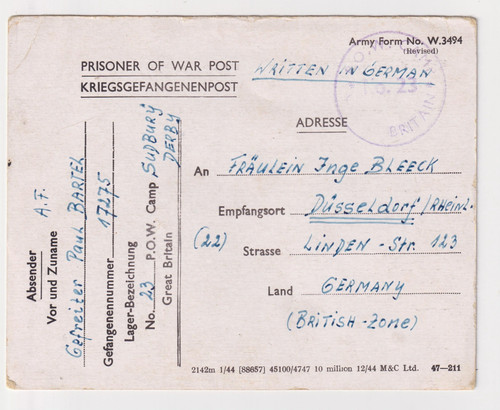 Army Form No. W.3494
(Revised)
PRISONER OF WAR POST
KRIEGSGEFANGENENPOST
WRITTEN IN GERMAN
23
BRITAIN
ADRESSE
An FRÄULEIN Inge BLEECK
Empfangsort DÜSSELDORF/RHEINL.
(22) Strasse LINDEN-Str. 123
Land GERMANY
(BRITISH-ZONE)
Absender A.F.
Vor und Zuname
Gefreiter Paul BARTEL
Gefangenennummer 17275
Lager-Bezeichnung
No. 23 P.O.W. Camp SUDBURY
Great Britain DERBY
2142m 1/44 [88657] 45100/4747 10 million 12/44 M&C Ltd. 47-211